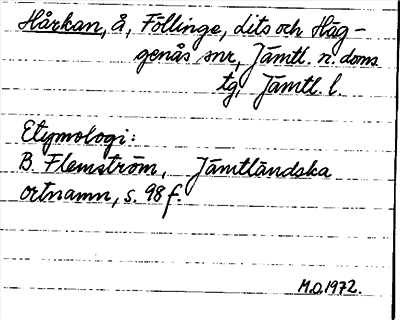 Hårkan, å, Föllinge, dits och Häg-
genås snr, Jämtl. n. doms
tg, Jämtl. l.
Etymologi:
B. Flemström, Jämtländska
ortnamn, s. 98 f.
M.O.1972.